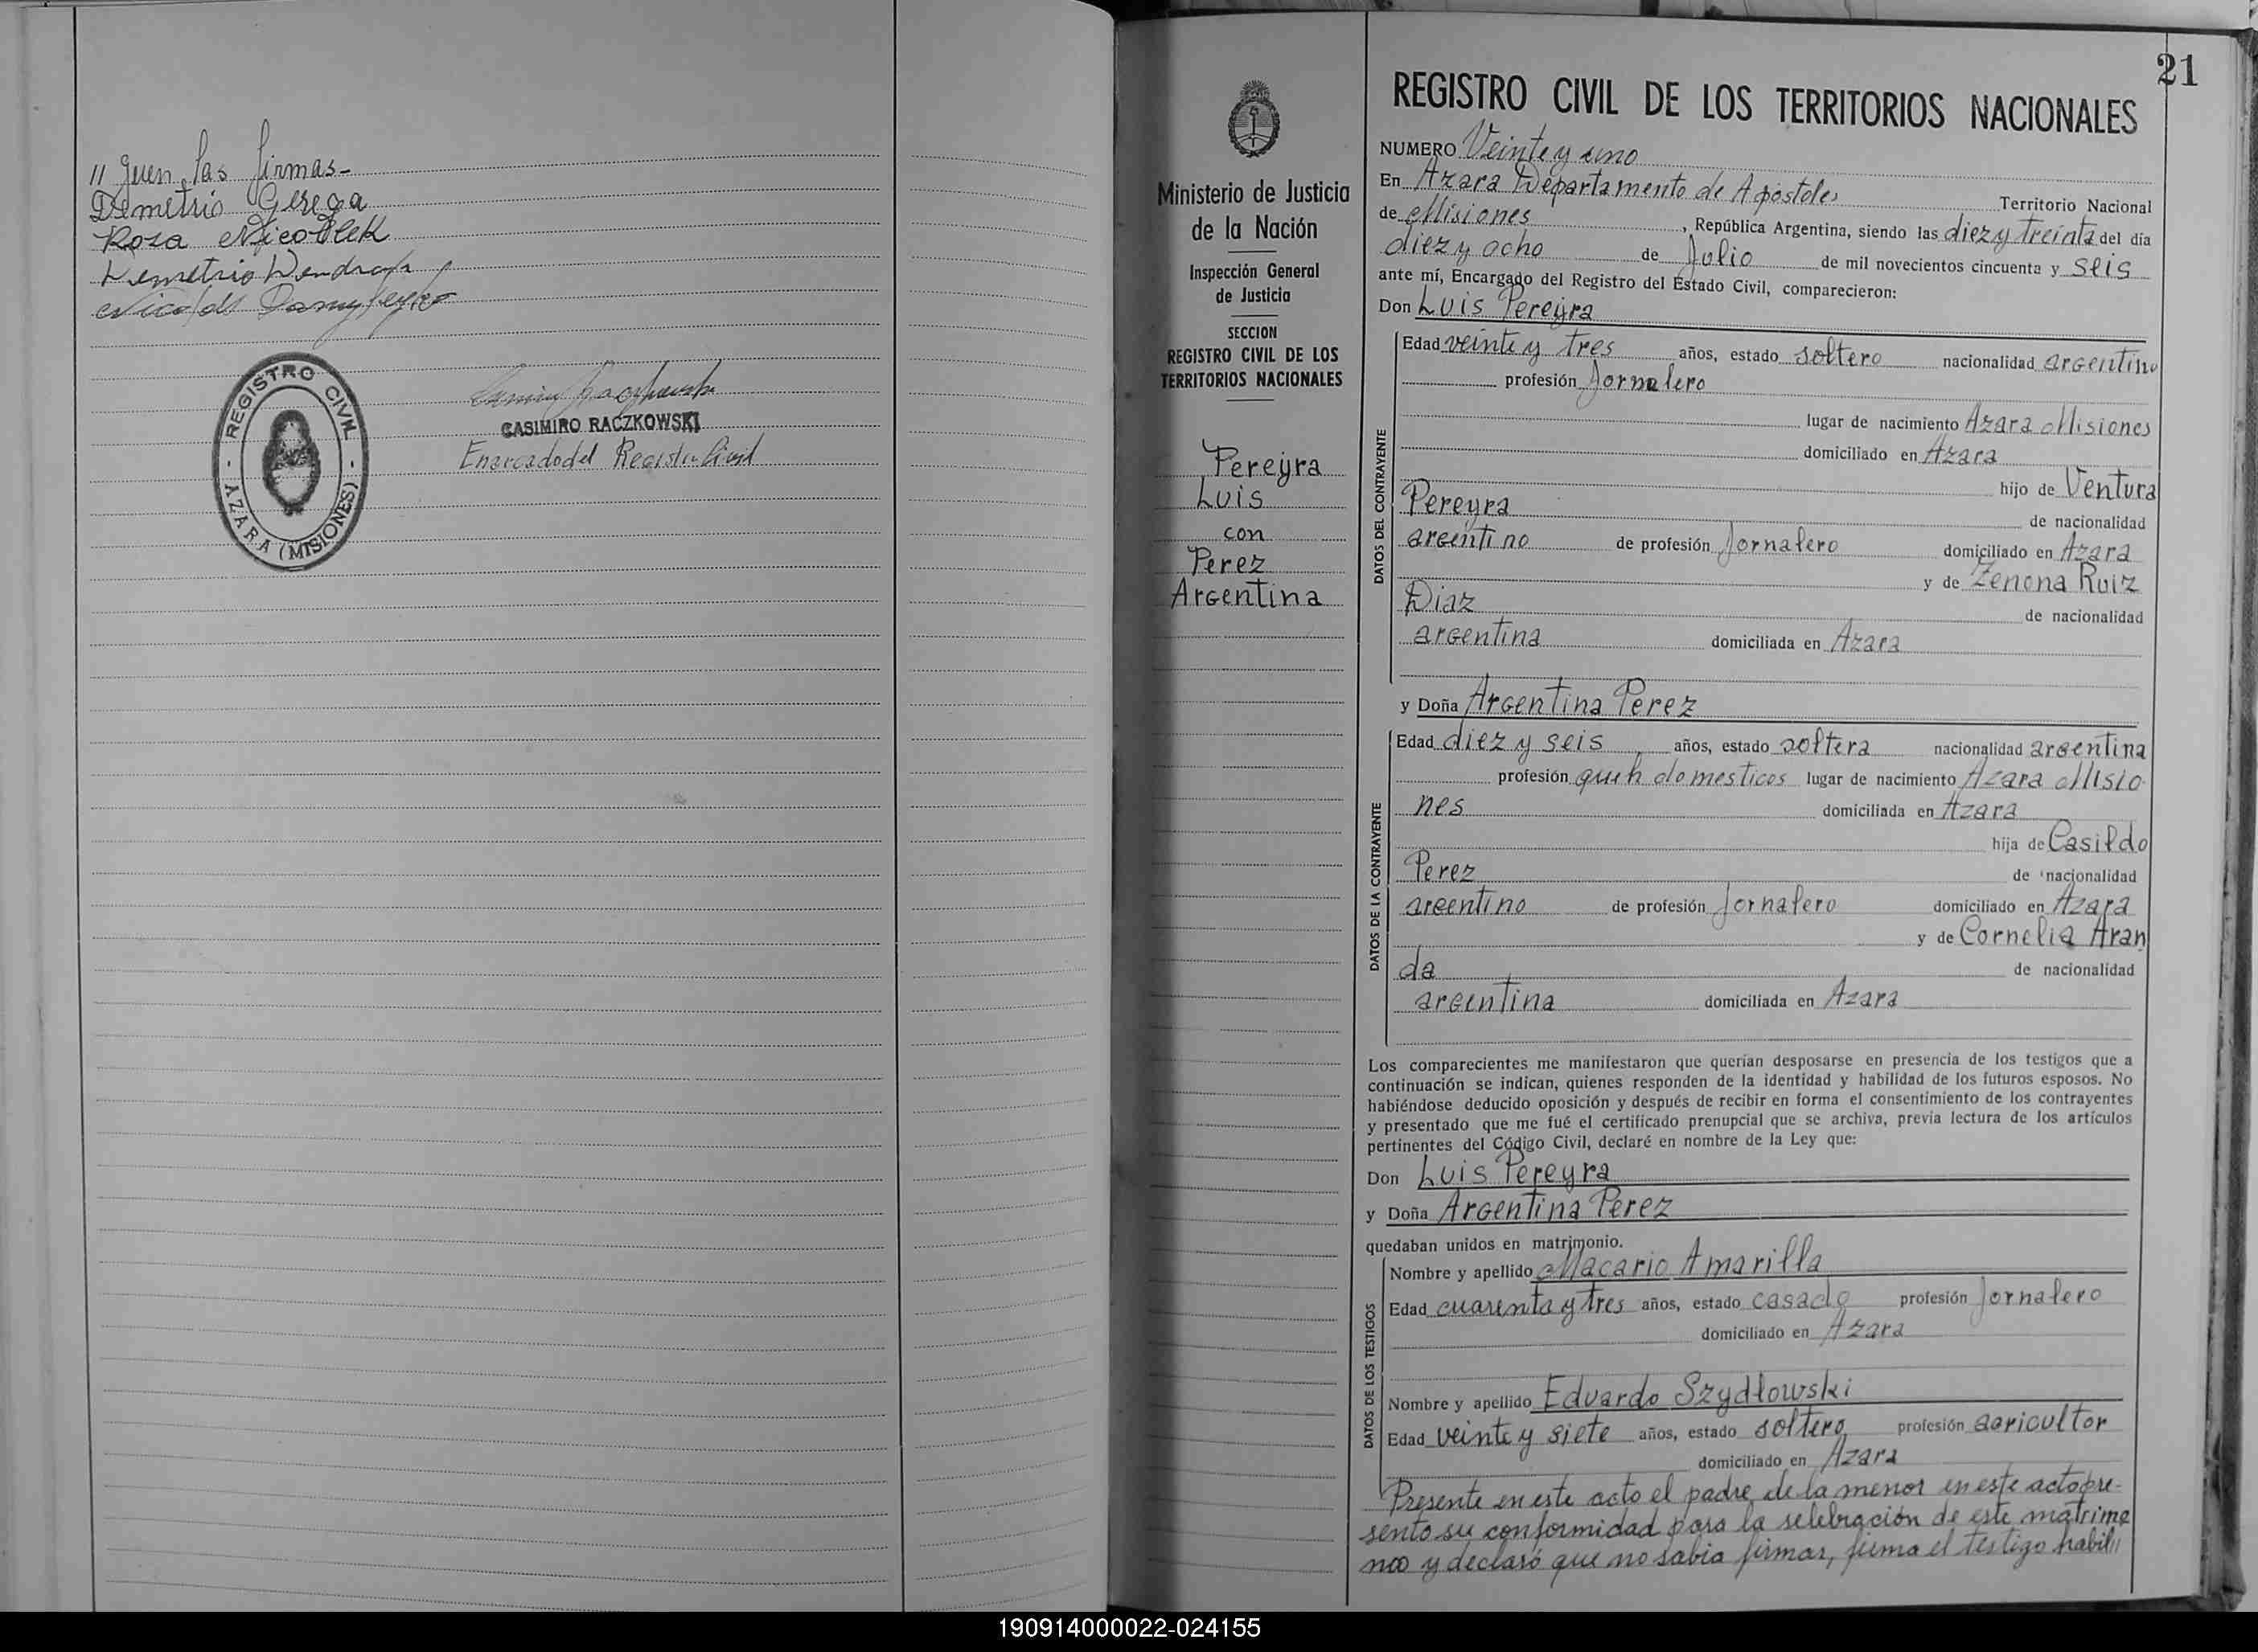 // guen las firmas-
Demetrio Gerega
Rosa Nicolek
Demetrio
Nicolas
REGISTRO CIVIL
- AZARA (MISIONES) -
CASIMIRO RACZKOWSKI
Encarcado del Registro Civil
21
Ministerio de Justicia
de la Nación
Inspección General
de Justicia
SECCION
REGISTRO CIVIL DE LOS
TERRITORIOS NACIONALES
Pereyra
Luis
con
Perez
Argentina
REGISTRO CIVIL DE LOS TERRITORIOS NACIONALES
NUMERO Veinte y uno
En Azara Departamento de Apostoles Territorio Nacional
de Misiones, República Argentina, siendo las diez y treinta del día
diez y ocho de Julio de mil novecientos cincuenta y seis
ante mí, Encargado del Registro del Estado Civil, comparecieron:
Don Luis Pereyra
DATOS DEL CONTRAYENTE
Edad veinte y tres años, estado soltero nacionalidad argentino
profesión Jornalero
lugar de nacimiento Azara Misiones
domiciliado en Azara
hijo de Ventura
Pereyra de nacionalidad
argentino de profesión Jornalero domiciliado en Azara
y de Zenona Ruiz
Diaz de nacionalidad
argentina domiciliada en Azara
y Doña Argentina Perez
DATOS DE LA CONTRAYENTE
Edad diez y seis años, estado soltera nacionalidad argentina
profesión queh domesticos lugar de nacimiento Azara Misio-
nes domiciliada en Azara
hija de Casildo
Perez de nacionalidad
argentino de profesión Jornalero domiciliado en Azara
y de Cornelia Aran
da de nacionalidad
argentina domiciliada en Azara
Los comparecientes me manifestaron que querían desposarse en presencia de los testigos que a
continuación se indican, quienes responden de la identidad y habilidad de los futuros esposos. No
habiéndose deducido oposición y después de recibir en forma el consentimiento de los contrayentes
y presentado que me fué el certificado prenupcial que se archiva, previa lectura de los artículos
pertinentes del Código Civil, declaré en nombre de la Ley que:
Don Luis Pereyra
y Doña Argentina Perez
quedaban unidos en matrimonio.
DATOS DE LOS TESTIGOS
Nombre y apellido Macario Amarilla
Edad cuarenta y tres años, estado casado profesión Jornalero
domiciliado en Azara
Nombre y apellido Eduardo Szydlowski
Edad veinte y siete años, estado soltero profesión agricultor
domiciliado en Azara
Presente en este acto el padre de la menor en este acto pre-
sento su conformidad para la selebración de este matrimo
noo y declaró que no sabia firmar, firma el testigo habil//
190914000022-024155